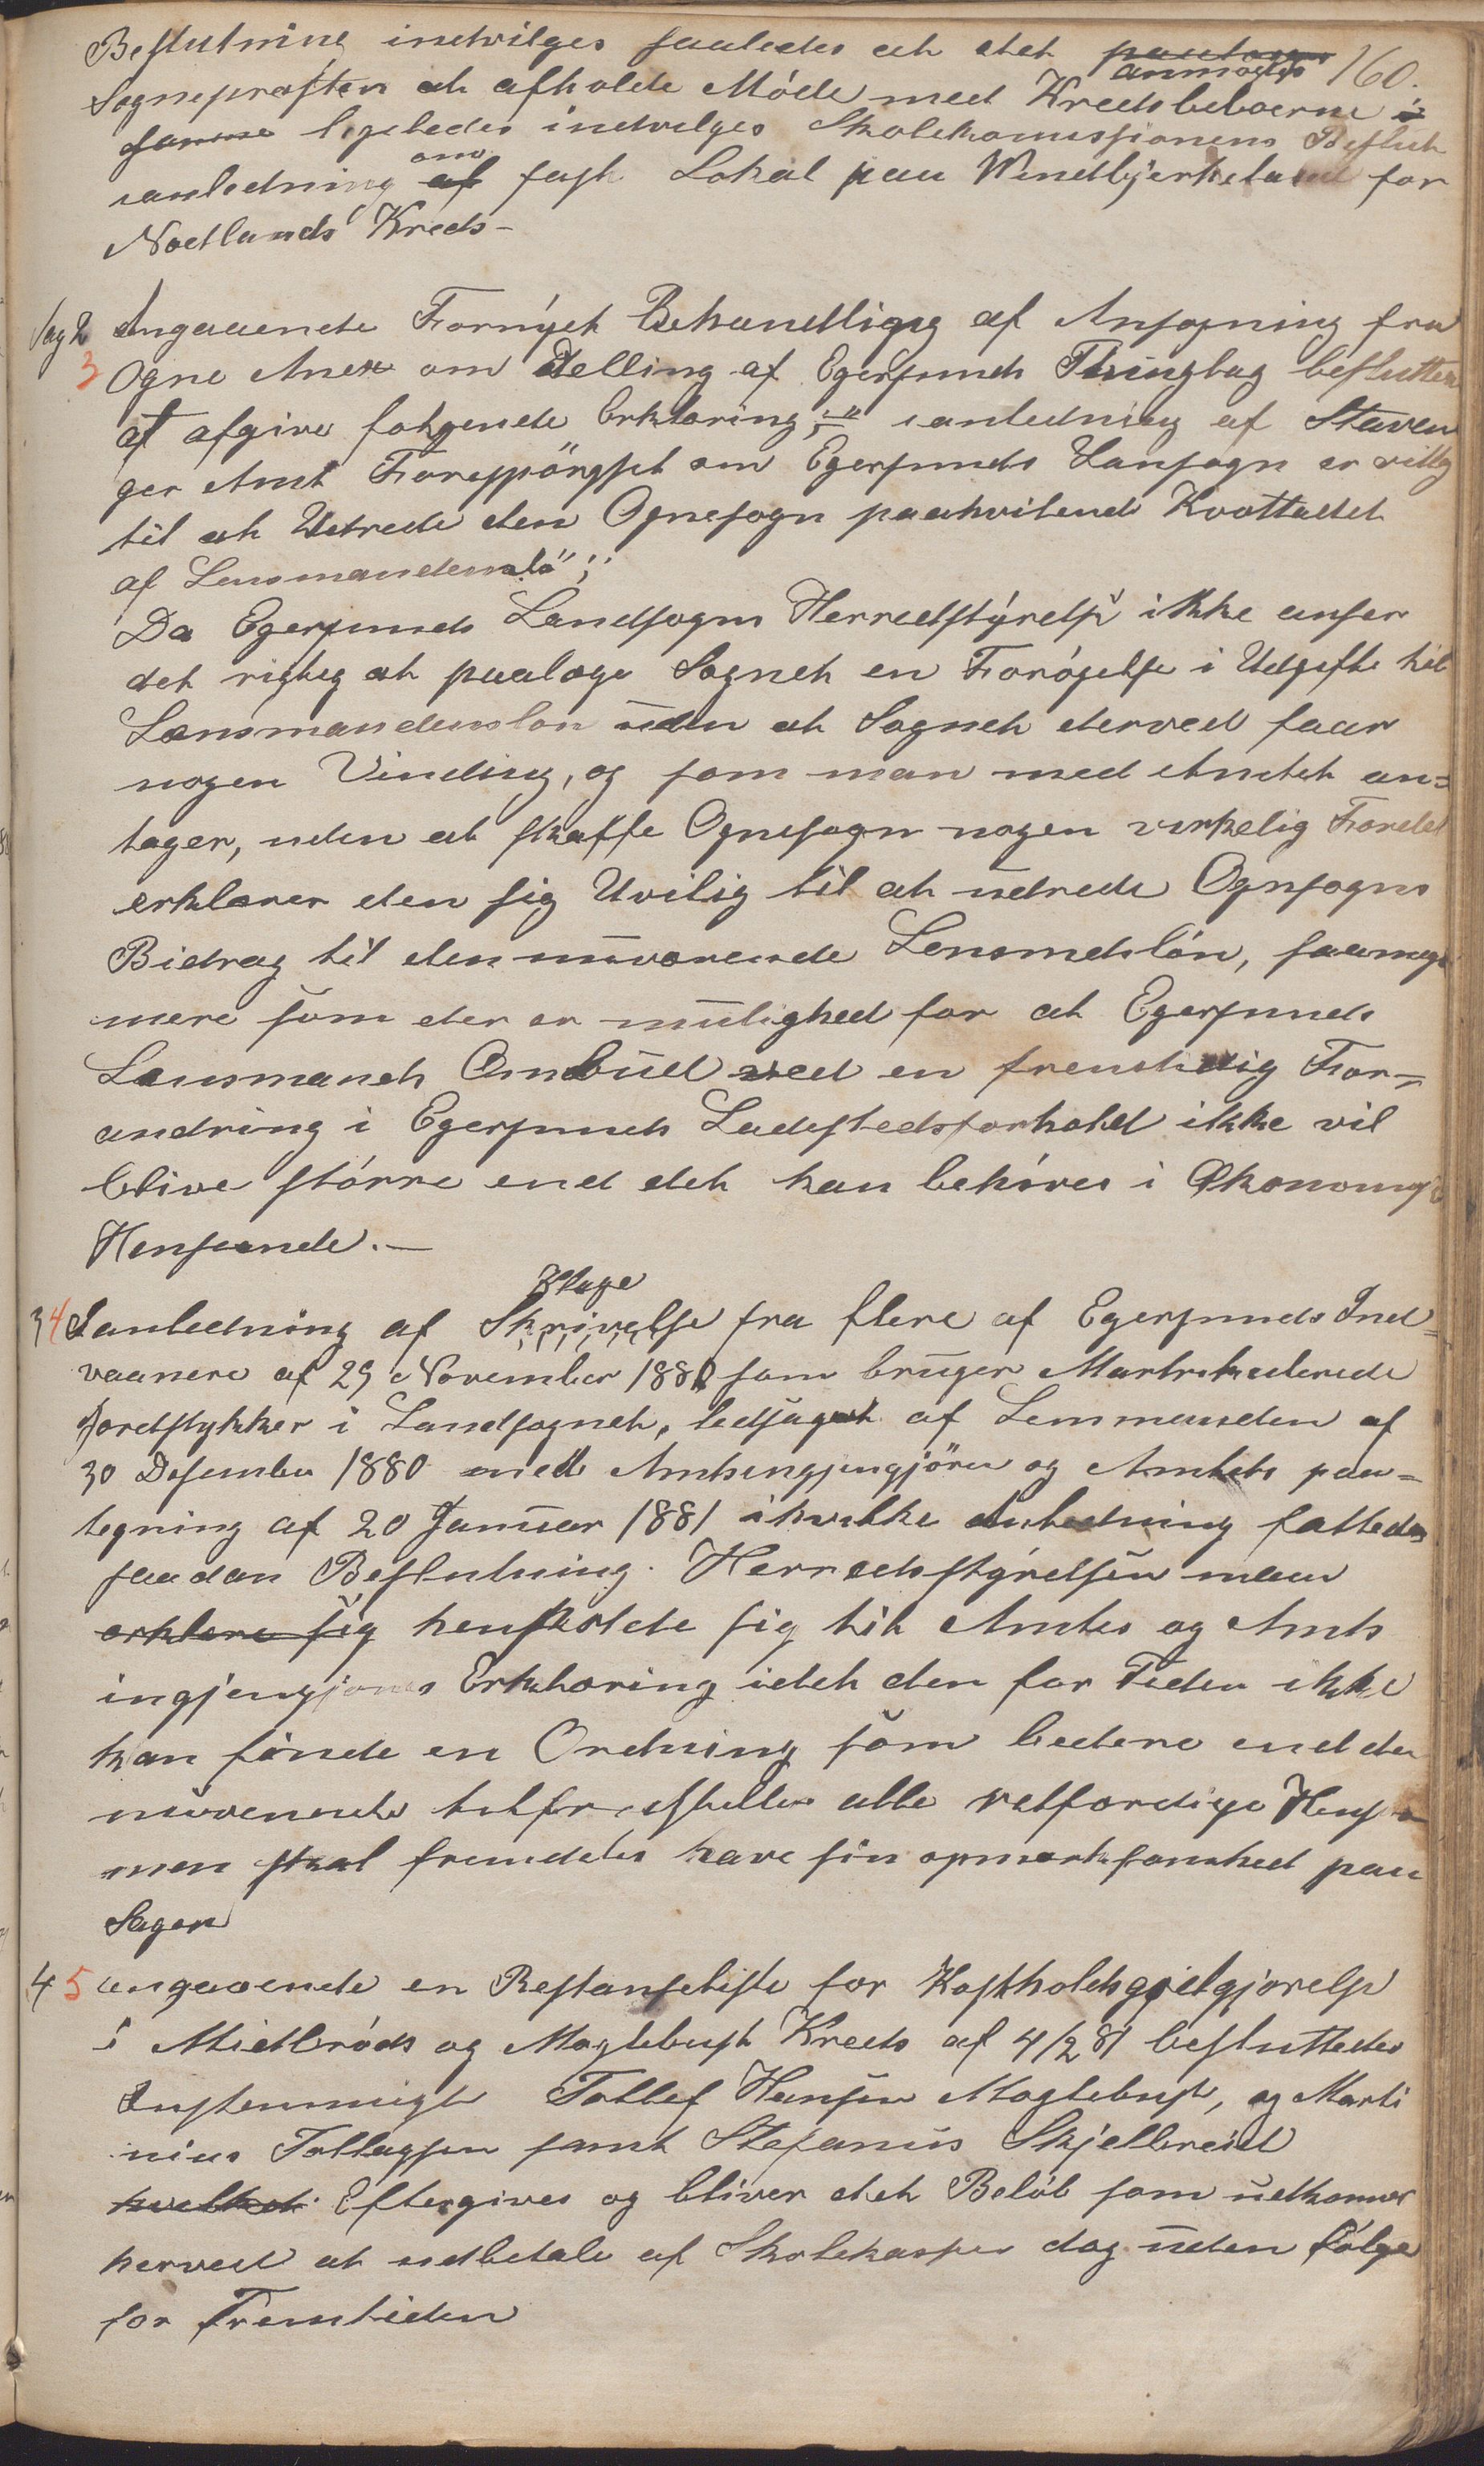 160.
Beslutning indvilges saaledes at det paalægges anmodes
Sognepræsten at afholde Møde med Kredsbeboerne i
samme ligeledes indvilges Skolekomissionens Beslut
ianledning af om fast Lokal paa Windbjerkeland for
Nodlands Kreds -
Sag 2 3 Angaaende Fornyet Behandling af Ansøgning fra
Ogne Anex om Delling af Egersunds Thinglag besluttes
at afgive følgende Erklæring; " ianledning af Stavan
ger Amt Forespørgsel om Egersunds Lansogn er villig
til at Udrede den Ognesogn paahvilende Kvottadel
af Lensmandensløn";
Da Egersunds Landsogns Herredstyrelse ikke anser
det rigtig at paalæge Sognet en Forøgelse i Udgifte til
Lænsmandensløn uden at Sognet derved faar
nogen Vinding, og som man med Amtet an=
tager, uden at skaffe Ognesogn nogen virkelig Fordel
erklærer den sig Uvilig til at udrede Ognsogns
Bidrag til den nuværende Lensmdsløn, saameget
mere som der er mulighed for at Egersunds
Lænsmands Ombud ved en fremtidig For=
andring i Egersunds Ladestedsforhold ikke vil
blive større end det kan behøves i Økonomisk
Henseende. -
3 4 Ianledning af Skrivelse Klage fra flere af Egersunds Ind=
vaanere af 29 November 1880 som bruger Martrikulerede
Jordstykker i Landsognet, ledsaget af Lensmanden af
30 Desember 1880 med Amtsingjengjører og Amtets paa=
tegning af 20 Januar 1881 ihvilke Anledning fattedes
saadan Beslutning. Herredsstyrelsen maa
erklære sig henholde sig til Amtes og Amts
ingjengjøres Erklæring idet den for Tiden ikke
kan finde en Ordning som bedere end den
nuværende tilfredsstiller alle retfærdige Hensyn
men skal fremdeles have sin opmærksomhed paa
Sagen
4 5 angaaende en Restanseliste for Kostholdsgodtgjørelse
i Midbrøds og Maglebust Kreds af 4/2 81 besluttedes
Enstemmigt Tollef Hansen Maglebust, og Marti
nius Tollagsen samt Stefanus Skjelbreid
hvilket Eftergives og bliver det Beløb som udkommer
herved at udbetale af Skolekassen dog uden Følge
for Fremtiden